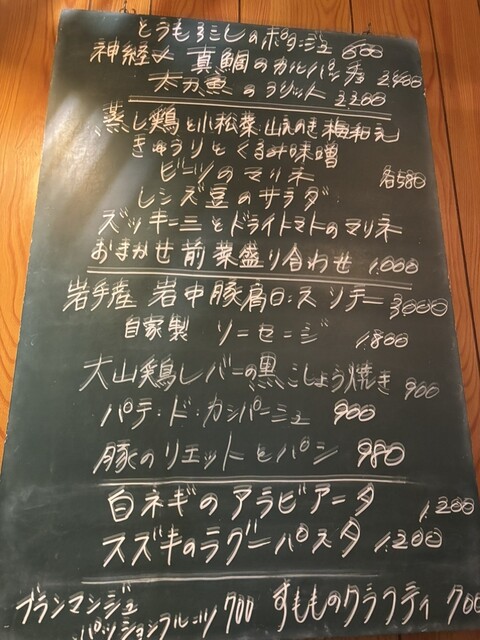 とうもろこしのポタージュ 600
神経〆 真鯛のカルパッチョ 2400
太刀魚のフリット 2200
蒸し鶏と小松菜・山えのき梅和え
きゅうりとくるみ味噌
ビーツのマリネ 各580
レンズ豆のサラダ
ズッキーニとドライトマトのマリネ
おまかせ前菜盛り合わせ 1.000
岩手産 岩中豚肩ロースソテー 3000
自家製 ソーセージ 1800
大山鶏レバーの黒こしょう焼き 900
パテ・ド・カンパーニュ 900
豚のリエットとパン 980
白ネギのアラビアータ 1.200
スズキのラグーパスタ 1.200
ブランマンジュ 700 すもものクラフティ 700
パッションフルーツ